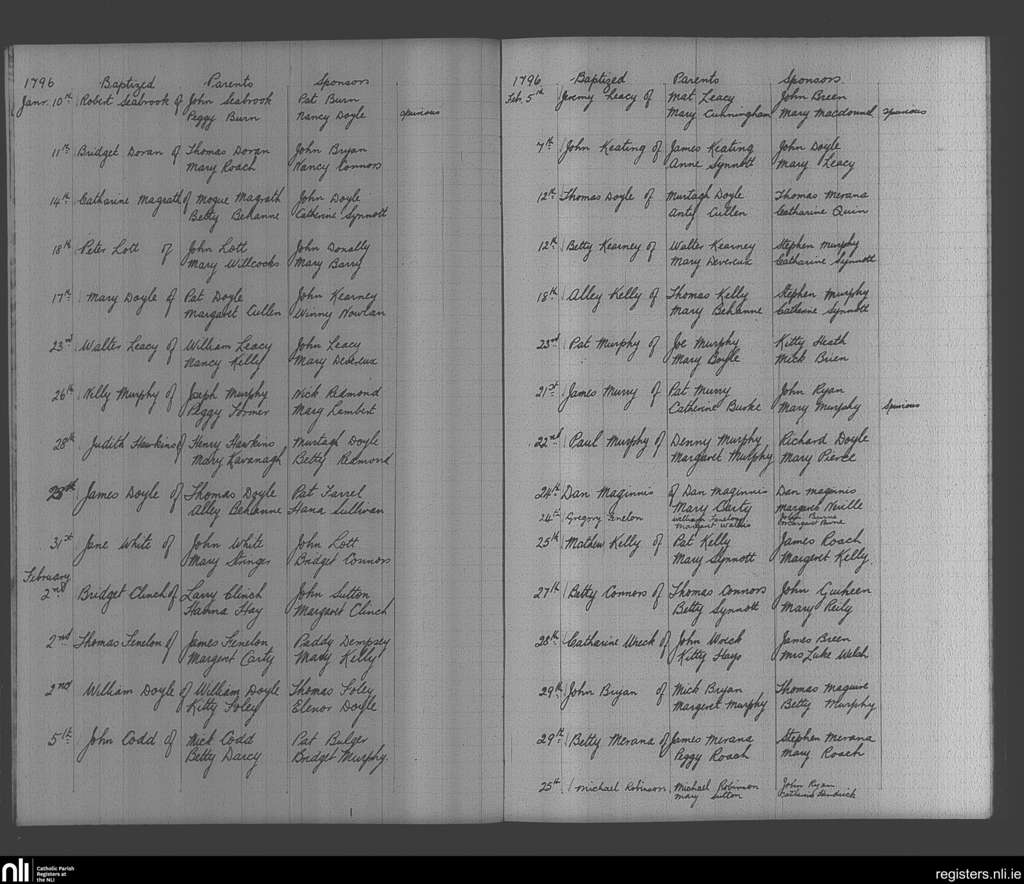 1796 Baptized Parents Sponsors
Janr. 10th Robert Seabrook of John Seabrook Pat Burn
Peggy Burn Nancy Doyle Spurious
11th Bridget Doran of Thomas Doran John Bryan
Mary Roach Nancy Connors
14th Catharine Magrath of Mogue Magrath John Doyle
Betty Behanne Catherine Synnott
18th Peter Lott of John Lott John Donally
Mary Willcocks Mary Barry
17th Mary Doyle of Pat Doyle John Kearney
Margaret Cullen Winny Nowlan
23rd Walter Leacy of William Leacy John Leacy
Nancy Kelly Mary Devereux
26th Killy Murphy of Joseph Murphy Nick Redmond
Peggy Mary Lambert
28th Judith Hawkins of Henry Hawkins Murtagh Doyle
Mary Kavanagh Betty Redmond
28th James Doyle of Thomas Doyle Pat Farrel
Alley Behanne Hana Sullivan
31st Jane White of John White John Lott
Mary Stringer Bridget Connors
February
2nd Bridget Clinch of Larry Clinch John Sutton
Hanna Hay Margaret Clinch
2nd Thomas Fenelon of James Fenelon Paddy Dempsey
Margaret Carty Mary Kelly
2nd William Doyle of William Doyle Thomas Foley
Kitty Foley Elenor Doyle
5th John Codd of Nick Codd Pat Bulger
Betty Darcy Bridget Murphy.
1796 Baptized Parents Sponsors
Feb. 5th Jeremy Leacy of Mat Leacy John Breen
Mary Cunningham Mary Macdound Spurious
7th John Keating of James Keating John Doyle
Anne Synnott Mary Leacy
12th Thomas Doyle of Murtagh Doyle Thomas Merana
Anty Cullen Catharine Quin
12th Betty Kearney of Walter Kearney Stephen Murphy
Mary Devereux Catharine Synnott
18th Alley Kelly of Thomas Kelly Stephen Murphy
Mary Behanne Catherine Synnott
23rd Pat Murphy of Joe Murphy Kitty Heath
Mary Doyle Mick Brien
21st James Murry of Pat Murry John Ryan
Catherine Burke Mary Murphy Spurious
22nd Paul Murphy of Denny Murphy Richard Doyle
Margaret Murphy Mary Pierce
24th Dan Maginnis of Dan Maginnis Dan Maginnis
Mary Carty Margaret Neville
24th Gregory Fenelon William Fenelon John Burne
Margaret Walsh Margaret Burne
25th Mathew Kelly of Pat Kelly James Roach
Mary Synnott Margaret Kelly.
27th Betty Connors of Thomas Connors John Guiheen
Betty Synnott Mary Reily
28th Catharine Wreck of John Wreck James Breen
Kitty Hays Mrs Luke Welch
29th John Bryan of Mick Bryan Thomas Maguire
Margaret Murphy Betty Murphy
29th Betty Merana of James Merana Stephen Merana
Peggy Roach Mary Roach
25th Michael Robinson Michael Robinson John Ryan
Mary Sutton Catherine Kendrick
nli Catholic Parish
Registers at
the NLI
registers.nli.ie